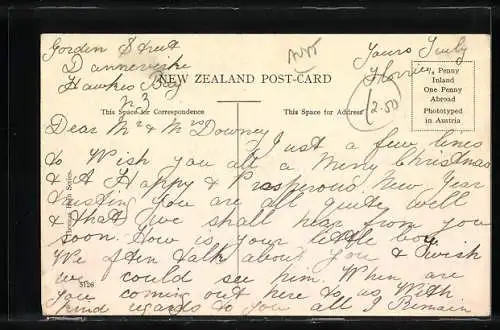 Gorden Street
Dannevirke
Hawkes Bay
N.Z
Yours Truly
Florrie
NEW ZEALAND POST-CARD
This Space for Correspondence
This Space for Address
½ Penny
Inland
One Penny
Abroad
Phototyped
in Austria
2.50
Dear Mr & Mrs Downey
Just a few lines
to Wish you all a Merry Christmas
& A Happy & Prosperous New Year
trusting you are all quite well
& that we shall hear from you
soon. How is your little boy.
We often talk about you & wish
we could see him. When are
you coming out here to us With
kind regards to you all I Remain
Series
5126